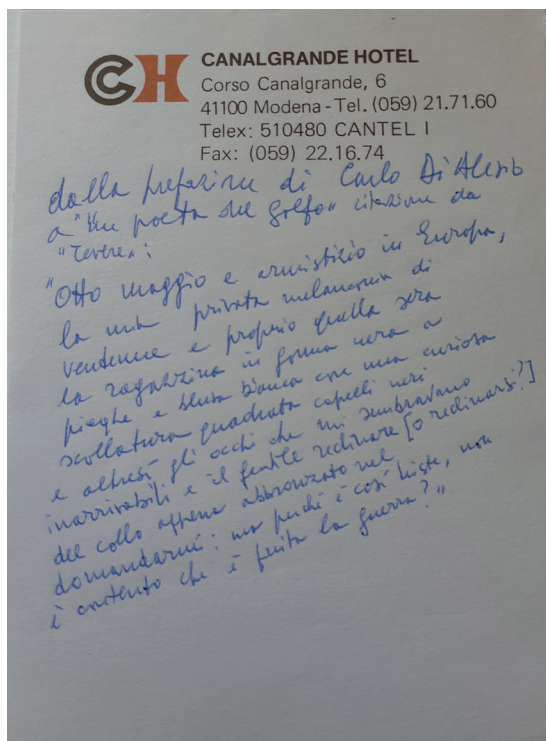 CH
CANALGRANDE HOTEL
Corso Canalgrande, 6
41100 Modena - Tel. (059) 21.71.60
Telex: 510480 CANTEL I
Fax: (059) 22.16.74
dalla prefazione di Carlo Di Alesio
a "Un poeta del golfo" citazione da
"Tevere":
"Otto maggio e armistizio in Europa,
la mia privata melanconia di
ventenne e proprio quella sera
la ragazzina in gonna nera a
pieghe e blusa bianca con una curiosa
scollatura quadrata capelli neri
e altresì gli occhi che mi sembravano
inarrivabili e il gentile reclinare [o reclinarsi?]
del collo appena abbronzato nel
domandarmi: ma perché è così triste, non
è contento che è finita la guerra?"